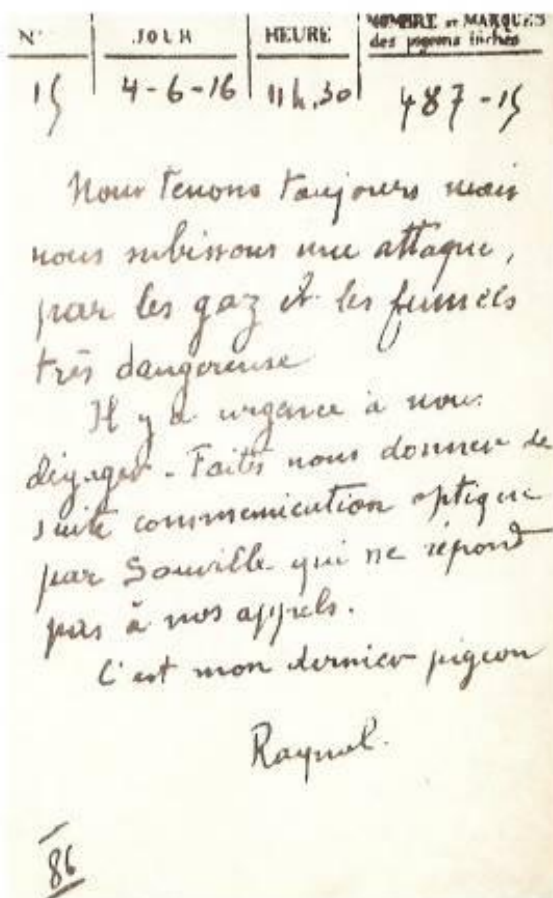 N° JOUR HEURE NOMBRE et MARQUES
des pigeons lâchés
15 4-6-16 11h.30 487-15
Nous tenons toujours mais
nous subissons une attaque,
par les gaz et les fumées
très dangereuse
Il y a urgence à nous
dégager - Faites nous donner de
suite communication optique
par Souville qui ne répond
pas à nos appels.
C'est mon dernier pigeon
Raynal.
86